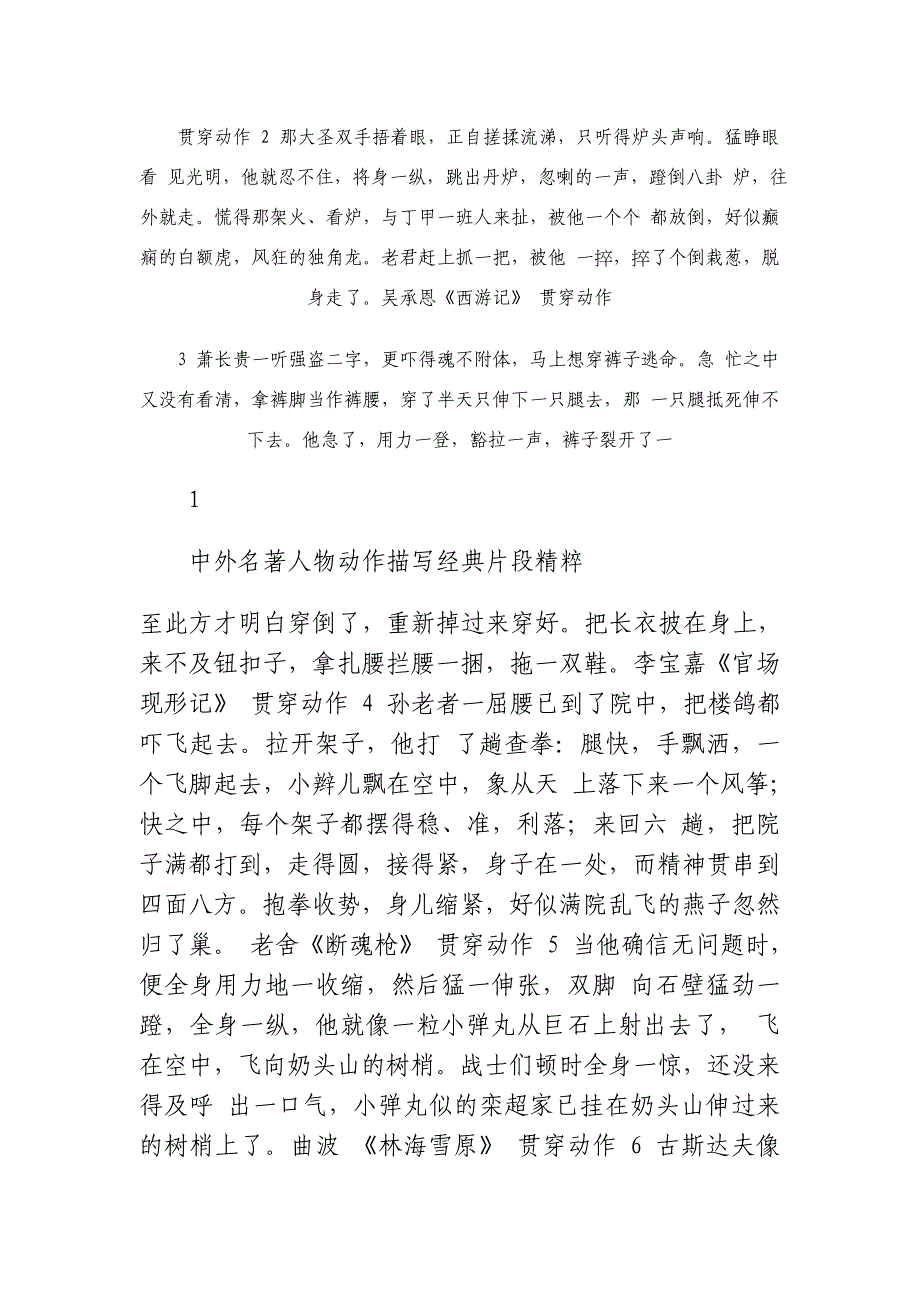 贯穿动作 2 那大圣双手捂着眼，正自搓揉流涕，只听得炉头声响。猛睁眼
看 见光明，他就忍不住，将身一纵，跳出丹炉，忽喇的一声，蹬倒八卦 炉，往
外就走。慌得那架火、看炉，与丁甲一班人来扯，被他一个个 都放倒，好似癫
痫的白额虎，风狂的独角龙。老君赶上抓一把，被他 一捽，捽了个倒栽葱，脱
身走了。吴承恩《西游记》 贯穿动作
3 萧长贵一听强盗二字，更吓得魂不附体，马上想穿裤子逃命。急 忙之中
又没有看清，拿裤脚当作裤腰，穿了半天只伸下一只腿去，那 一只腿抵死伸不
下去。他急了，用力一登，豁拉一声，裤子裂开了一
1
中外名著人物动作描写经典片段精粹
至此方才明白穿倒了，重新掉过来穿好。把长衣披在身上，
来不及钮扣子，拿扎腰拦腰一捆，拖一双鞋。李宝嘉《官场
现形记》 贯穿动作 4 孙老者一屈腰已到了院中，把楼鸽都
吓飞起去。拉开架子，他打 了趟查拳：腿快，手飘洒，一
个飞脚起去，小辫儿飘在空中，象从天 上落下来一个风筝；
快之中，每个架子都摆得稳、准，利落；来回六 趟，把院
子满都打到，走得圆，接得紧，身子在一处，而精神贯串到
四面八方。抱拳收势，身儿缩紧，好似满院乱飞的燕子忽然
归了巢。 老舍《断魂枪》 贯穿动作 5 当他确信无问题时，
便全身用力地一收缩，然后猛一伸张，双脚 向石壁猛劲一
蹬，全身一纵，他就像一粒小弹丸从巨石上射出去了， 飞
在空中，飞向奶头山的树梢。战士们顿时全身一惊，还没来
得及呼 出一口气，小弹丸似的栾超家已挂在奶头山伸过来
的树梢上了。曲波 《林海雪原》 贯穿动作 6 古斯达夫像